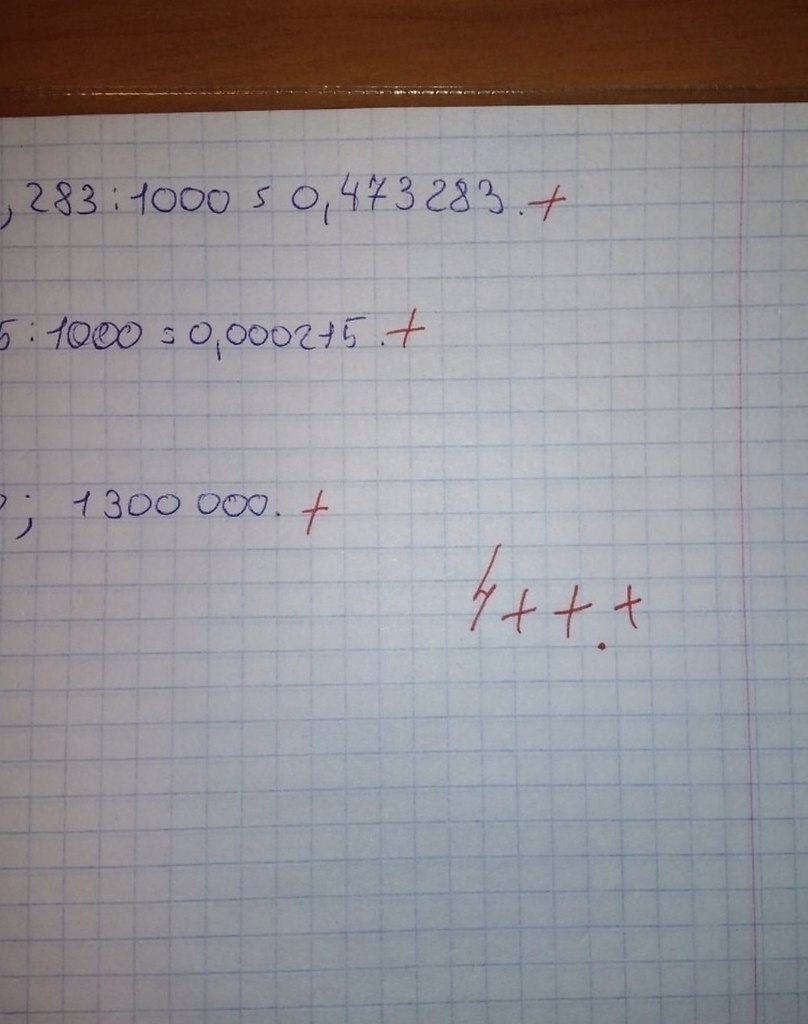 ,283:1000=0,473283.+
5:1000=0,000215.+
; 1300 000. +
4+++.